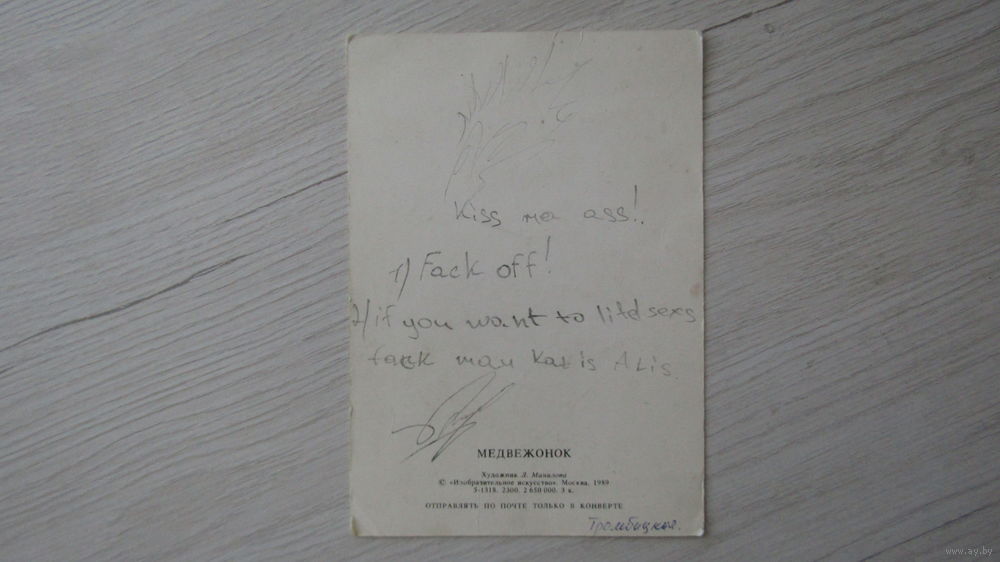 Kiss ma ass!
1) Fack off!
2) if you want to litd sexs
fack man Kazis Azis.
МЕДВЕЖОНОК
Художник Л. Манилова
© «Изобразительное искусство». Москва. 1989
5-1318. 2300. 2 650 000. 3 к.
ОТПРАВЛЯТЬ ПО ПОЧТЕ ТОЛЬКО В КОНВЕРТЕ
Тромбицкая.
www.ay.by